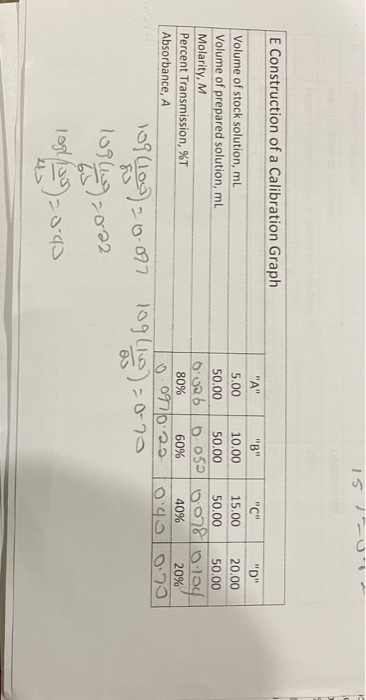 E Construction of a Calibration Graph
"A" "B" "C" "D"
Volume of stock solution, mL 5.00 10.00 15.00 20.00
Volume of prepared solution, mL 50.00 50.00 50.00 50.00
Molarity, M 0.026 0.052 0.078 0.104
Percent Transmission, %T 80% 60% 40% 20%
Absorbance, A 0.097 0.22 0.40 0.70
log(100/80)=0.097 log(100/20)=0.70
log(100/60)=0.22
log(100/40)=0.40